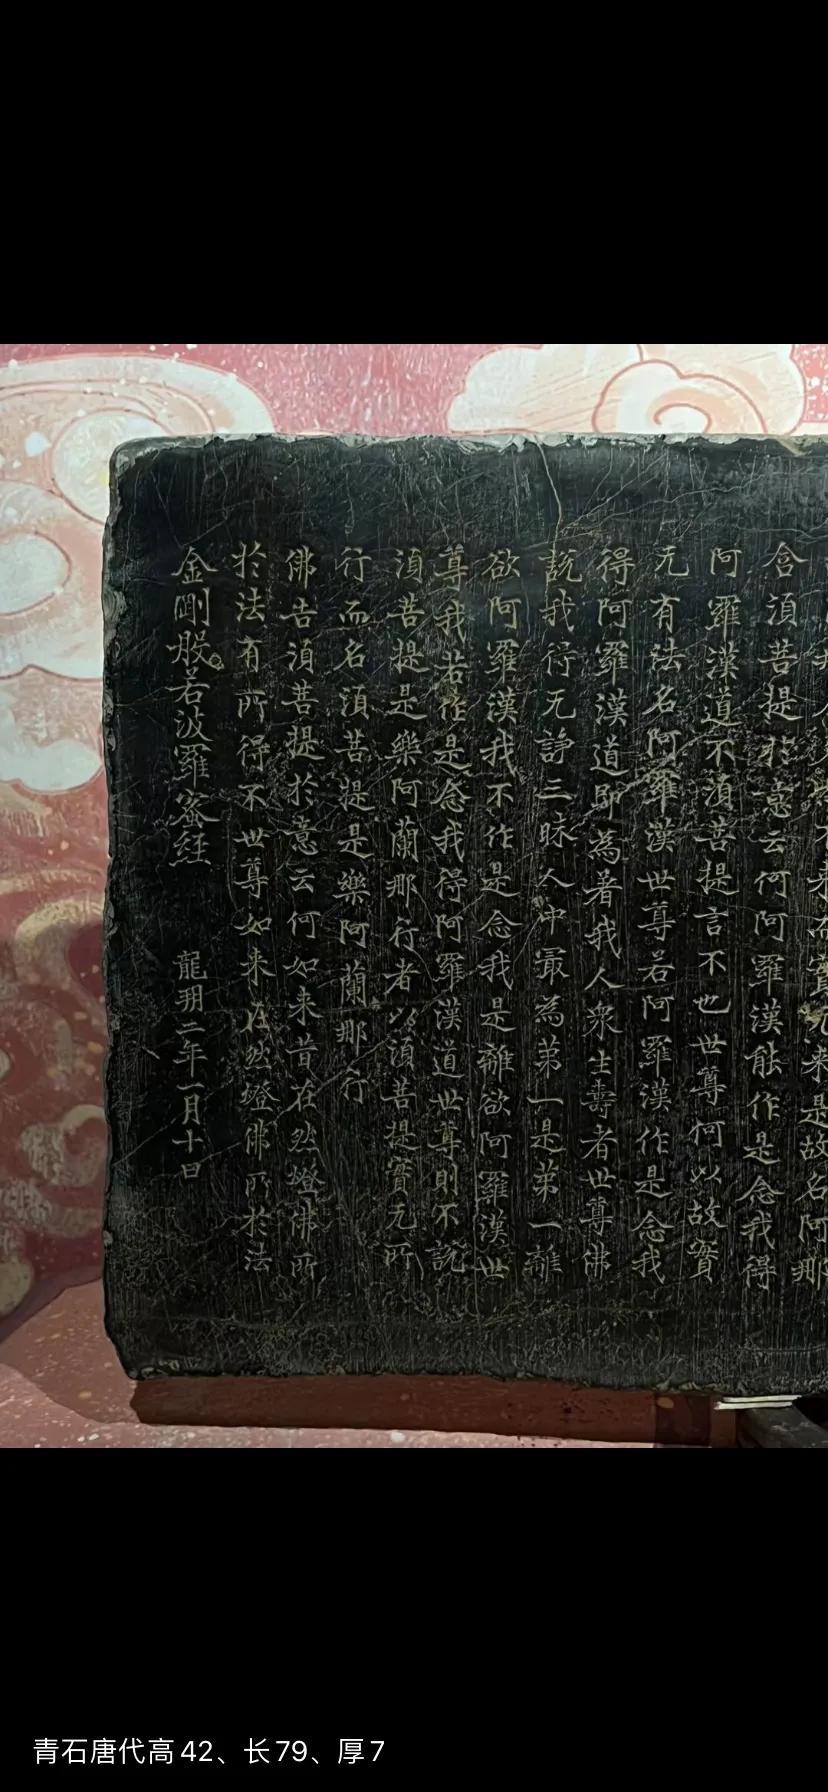 来而實无来是故名阿那
含湏菩提於意云何阿羅漢能作是念我得
阿羅漢道不湏菩提言不也世尊何以故實
无有法名阿羅漢世尊若阿羅漢作是念我
得阿羅漢道即為著我人衆生壽者世尊佛
說我得无諍三昧人中最為第一是第一離
欲阿羅漢我不作是念我是離欲阿羅漢世
尊我若作是念我得阿羅漢道世尊則不說
湏菩提是樂阿蘭那行者以湏菩提實无所
行而名湏菩提是樂阿蘭那行
佛告湏菩提於意云何如来昔在然燈佛所
於法有所得不世尊如来在然燈佛所於法
金剛般若波羅蜜經 龍朔二年一月十日
青石唐代高42、长79、厚7